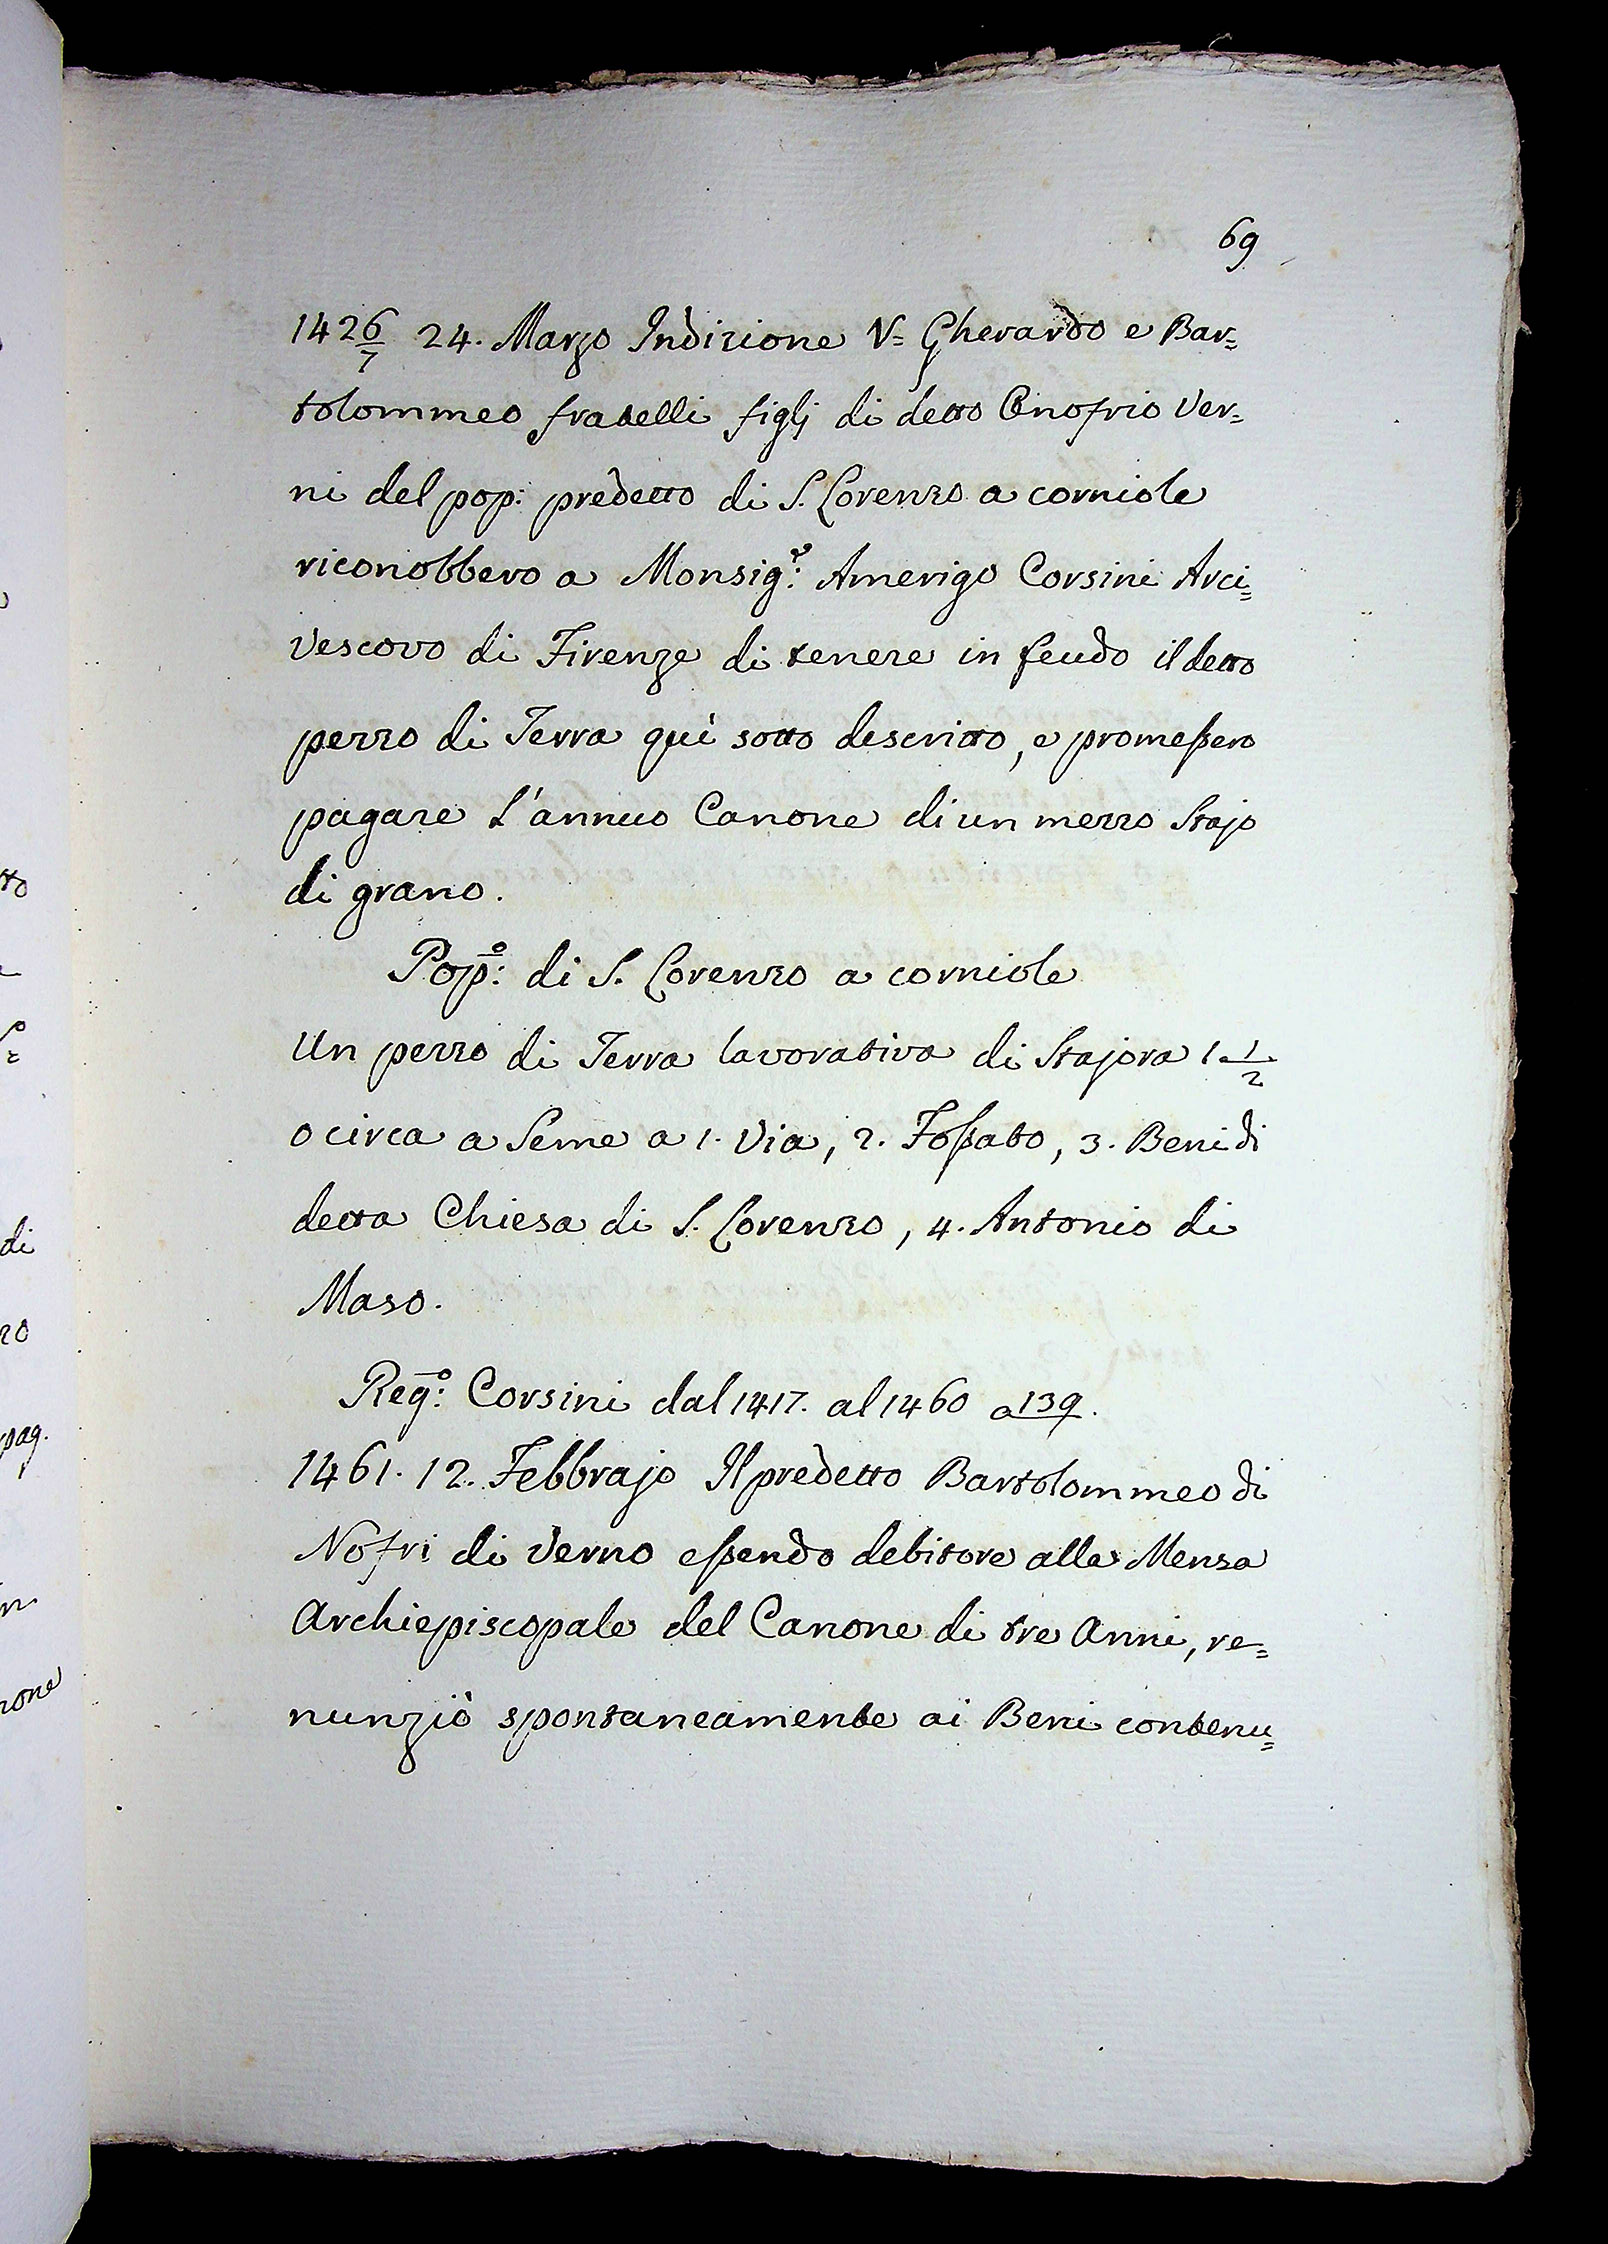 69
1426/7 24. Marzo Indizione V= Gherardo e Bar=
tolommeo fratelli figlj di detto Onofrio Ver=
ni del pop: predetto di S. Lorenzo a corniole
riconobbero a Monsig.e: Amerigo Corsini Arci=
vescovo di Firenze di tenere in feudo il detto
pezzo di Terra quì sotto descritto, e promeßero
pagare l'annuo Canone di un mezzo Stajo
di grano.
Pop.o: di S. Lorenzo a corniole
Un pezzo di Terra lavorativa di Stajora 1 1/2
o circa a Seme a 1. Via, 2. Foßato, 3. Beni di
detta Chiesa di S. Lorenzo, 4. Antonio di
Maso.
Reg.o: Corsini dal 1417. al 1460 a 139.
1461. 12. Febbrajo Il predetto Bartolommeo di
Nofri di Verno eßendo debitore alla Mensa
Archiepiscopale del Canone di tre Anni, re=
nunziò spontaneamente ai Beni contenu=